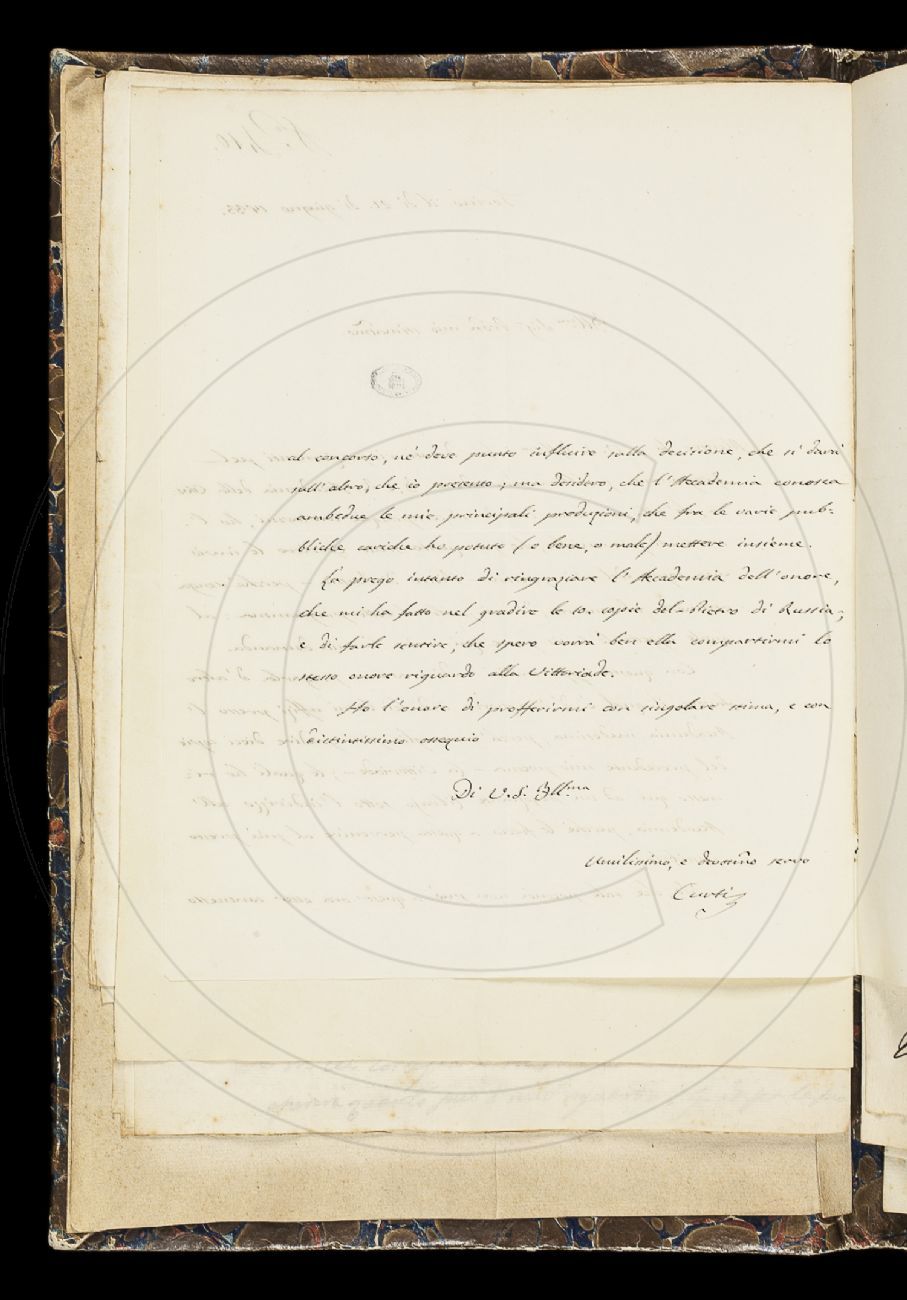 al concorso, nè deve punto influire sulla decisione, che si darà
sull'altro, che io presento; ma desidero, che l'Accademia conosca
ambedue le mie principali produzioni, che fra le varie pub=
bliche cariche ho potuto (o bene, o male) mettere insieme.
La prego intanto di ringraziare l'Accademia dell'onore,
che mi ha fatto nel gradire le 10. copie del Pietro di Russia;
e di farle sentire, che spero vorrà ben ella compartirmi lo
stesso onore riguardo alla Vitteriade.
Ho l'onore di profferirmi con singolare stima, e con
distintissimo ossequio
Di V. S. Ill.ma
Umilissimo, e devotiño servo
Curti